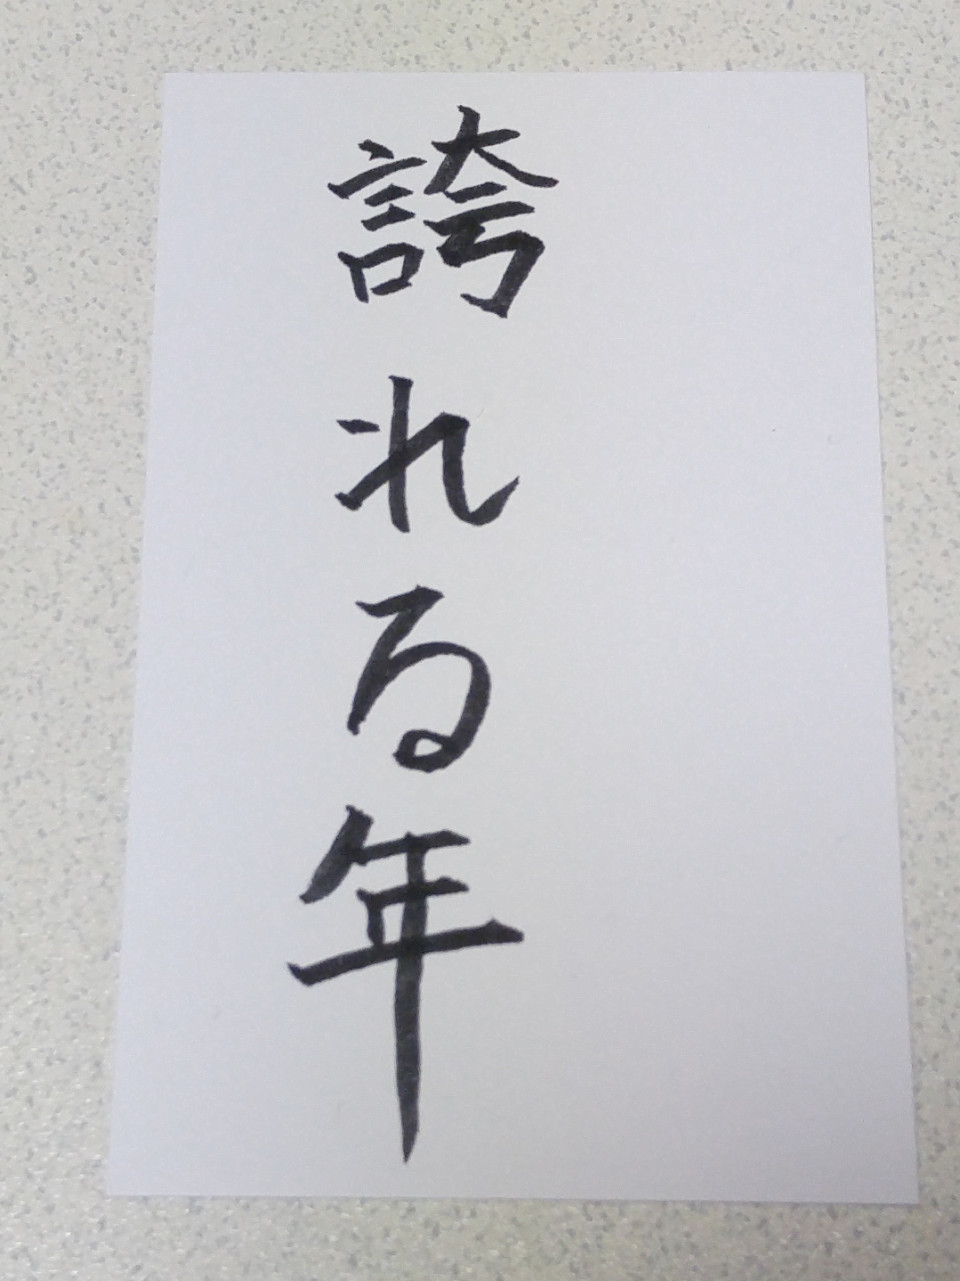 誇れる年